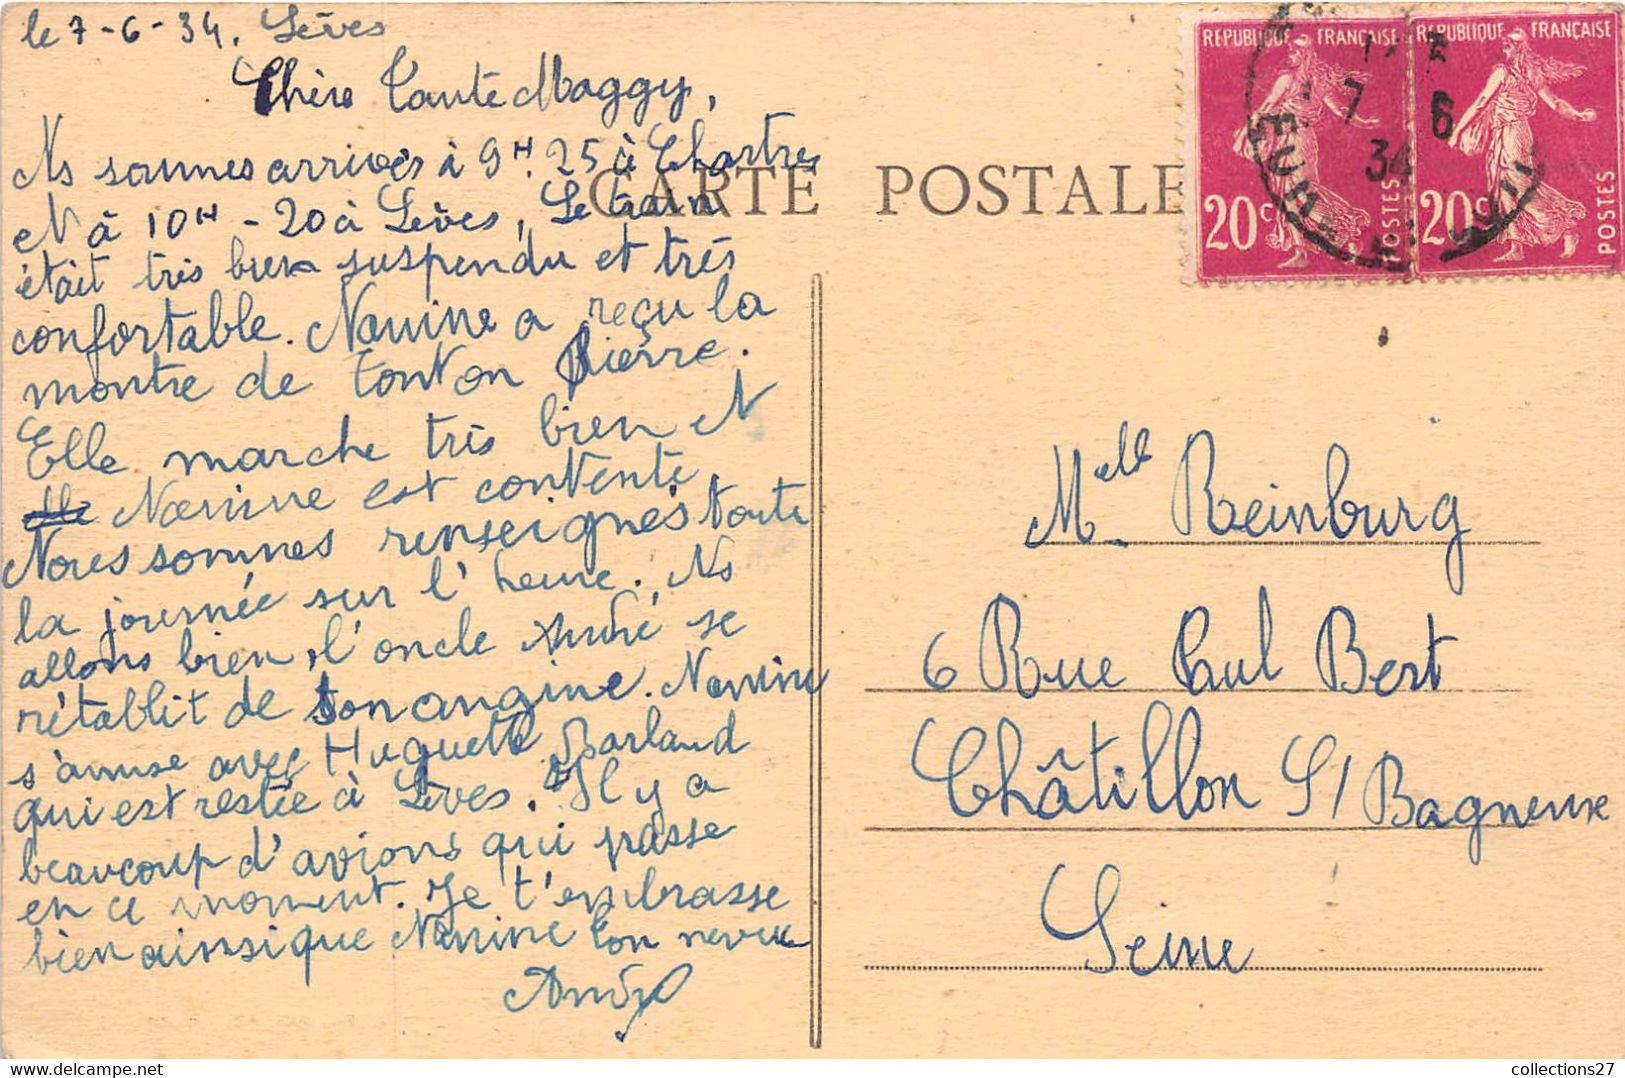 le 7-6-34. Lèves
Chère Tante Maggy,
Ns sommes arrivés à 9H.25 à Chartres
et à 10H-20 à Lèves, Le train
était très bien suspendu et très
confortable. Nanine a reçu la
montre de tonton Pierre.
Elle marche très bien et
Nanine est contente
Nous sommes renseignés toute
la journée sur l'heure. Ns
allons bien, l'oncle André se
rétablit de son angine. Nanine
s'amuse avec Huguette Barland
qui est restée à Lèves. Il y a
beaucoup d'avions qui passe
en ce moment. Je t'embrasse
bien ainsi que Nanine ton neveu
André
CARTE POSTALE
REPUBLIQUE FRANÇAISE
20c
POSTES
REPUBLIQUE FRANÇAISE
20c
POSTES
7 6
34
EURE
Melle Reinburg
6 Rue Paul Bert
Châtillon S/ Bagneux
Seine
collections27